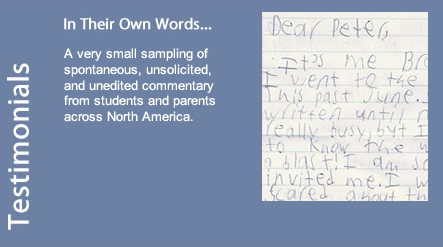 Testimonials
In Their Own Words...
A very small sampling of
spontaneous, unsolicited,
and unedited commentary
from students and parents
across North America.
Dear Peter,
It's me Br
I went to the
this past June.
written until
really busy, but I
to know the w
a blast! I am so
invited me. I w
scared about th